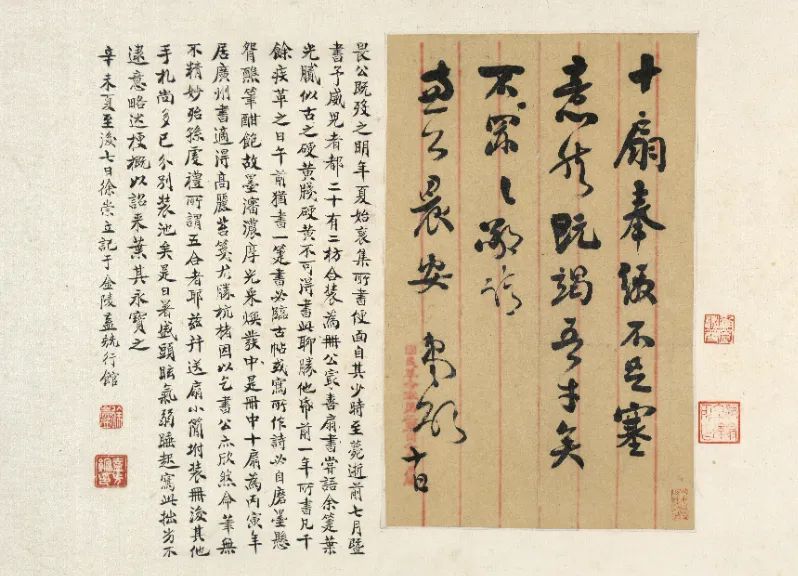 十扇奉缴不足塞
意然既竭吾才矣
不罪〻敬請
公晨安 弟 頓 十日
畏公既歿之明年夏始裒集所書便面自其少時至薨逝前七月暨
書予威兒者都二十有二枋合装為冊公寔喜扇書嘗語余箑葉
光膩似古之硬黄牋硬黄不可得書此聊勝他帋前一年所書凡千
餘疾革之日午前猶書一箑書必臨古帖或寫所作詩必自磨墨懸
臂 筆酣飽故墨瀋濃厚光采煥發中是冊中十扇為丙寅年
居廣州書適得高麗苔箋尤勝杭楮因以乞書公亦欣然命筆無
不精妙殆孫虔禮所謂五合者耶茲并送扇小簡坿装冊後其他
手札尚多已分別装池矣是日暑盛頭眩氣弱睡起寫此拙劣不
逮意略述梗概以詒来葉其永寶之
辛未夏至後七日徐崇立記于金陵 號行館